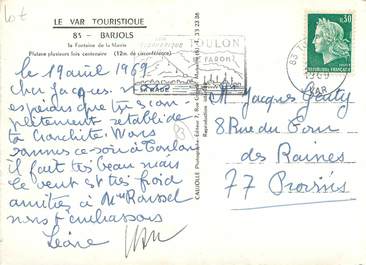 LE VAR TOURISTIQUE
83 - BARJOLS
la Fontaine de la Mairie
Platane plusieurs fois centenaire (12m. de circonférence)
le 19 avril 1969
Cher Jacques. n
espérons que tu es com
plètement rétabli de
ta bronchite. Nous
sommes ce soir à Toulon
Il fait très beau mais
le vent est très froid
amitiés à Mme Roussel
nous t'embrassons
CAUJOLLE Photographe
TOULON
LA RADE
83 TO
VAR
0,30
REPUBLIQUE FRANCAISE
M Jacques
8 Rue du
des Raines
77 Provins